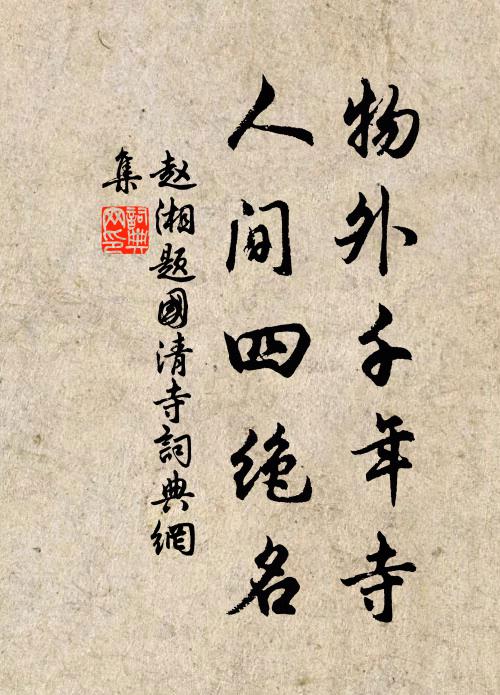 物外千年寺
人间四绝名
赵湘题國清寺詞典網
集
詞典网印